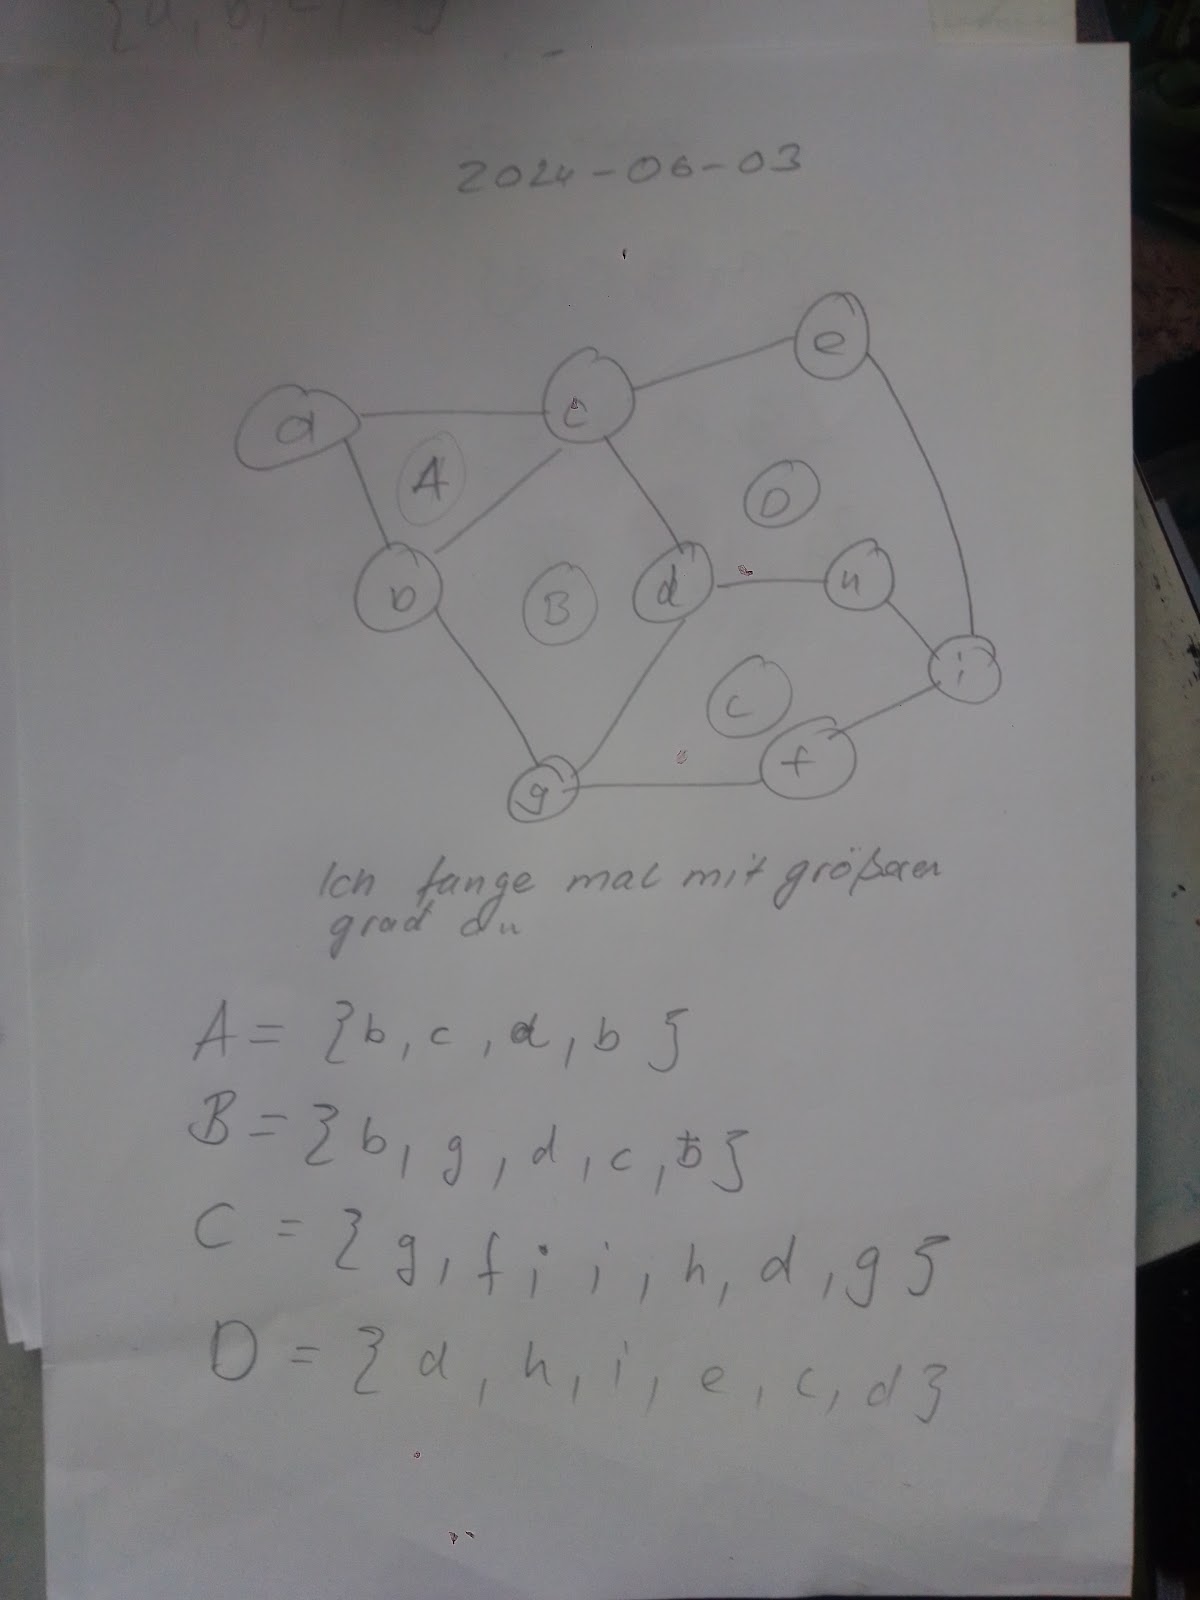 2024-06-03
e
c
a
A
D
h
d
b
B
i
C
f
g
Ich fange mal mit größeren
grad an
A = {b, c, a, b}
B = {b, g, d, c, b}
C = {g, f, i, h, d, g}
D = {d, h, i, e, c, d}